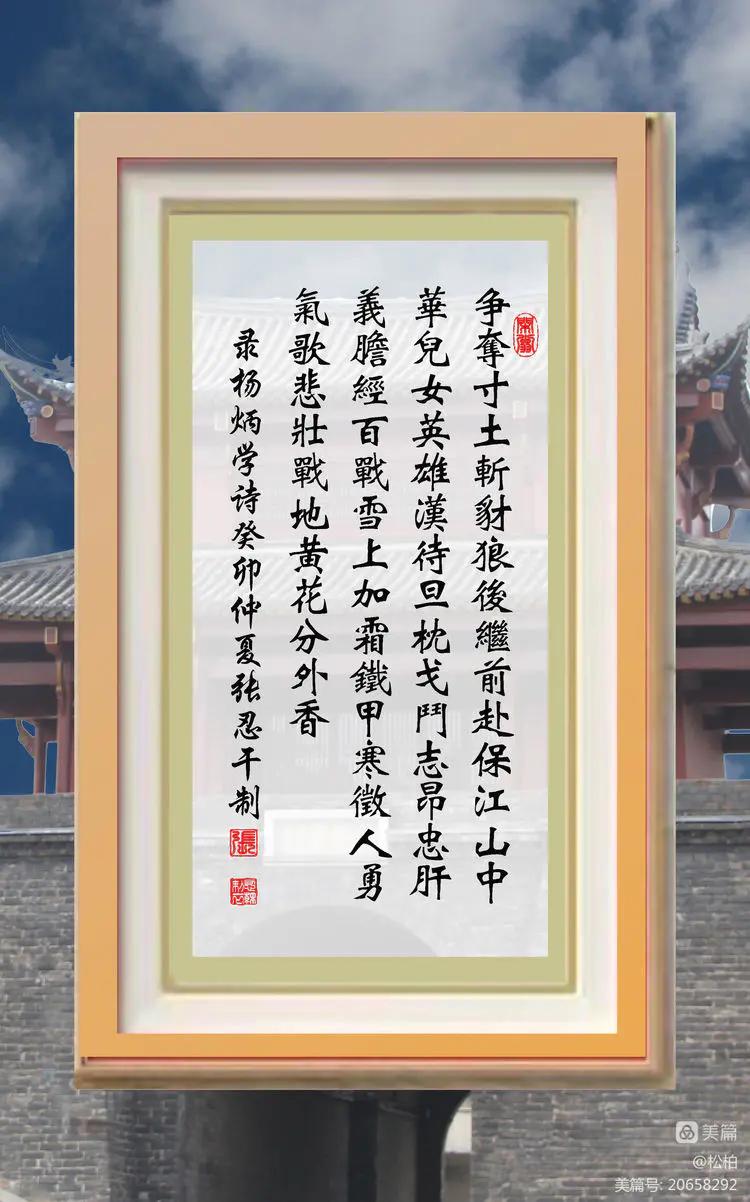 争奪寸土斬豺狼後繼前赴保江山中
華兒女英雄漢待旦枕戈鬥志昂忠肝
義膽經百戰雪上加霜鐵甲寒徵人勇
氣歌悲壯戰地黃花分外香
录杨炳学诗癸卯仲夏张忍干制
美篇
@松柏
美篇号: 20658292